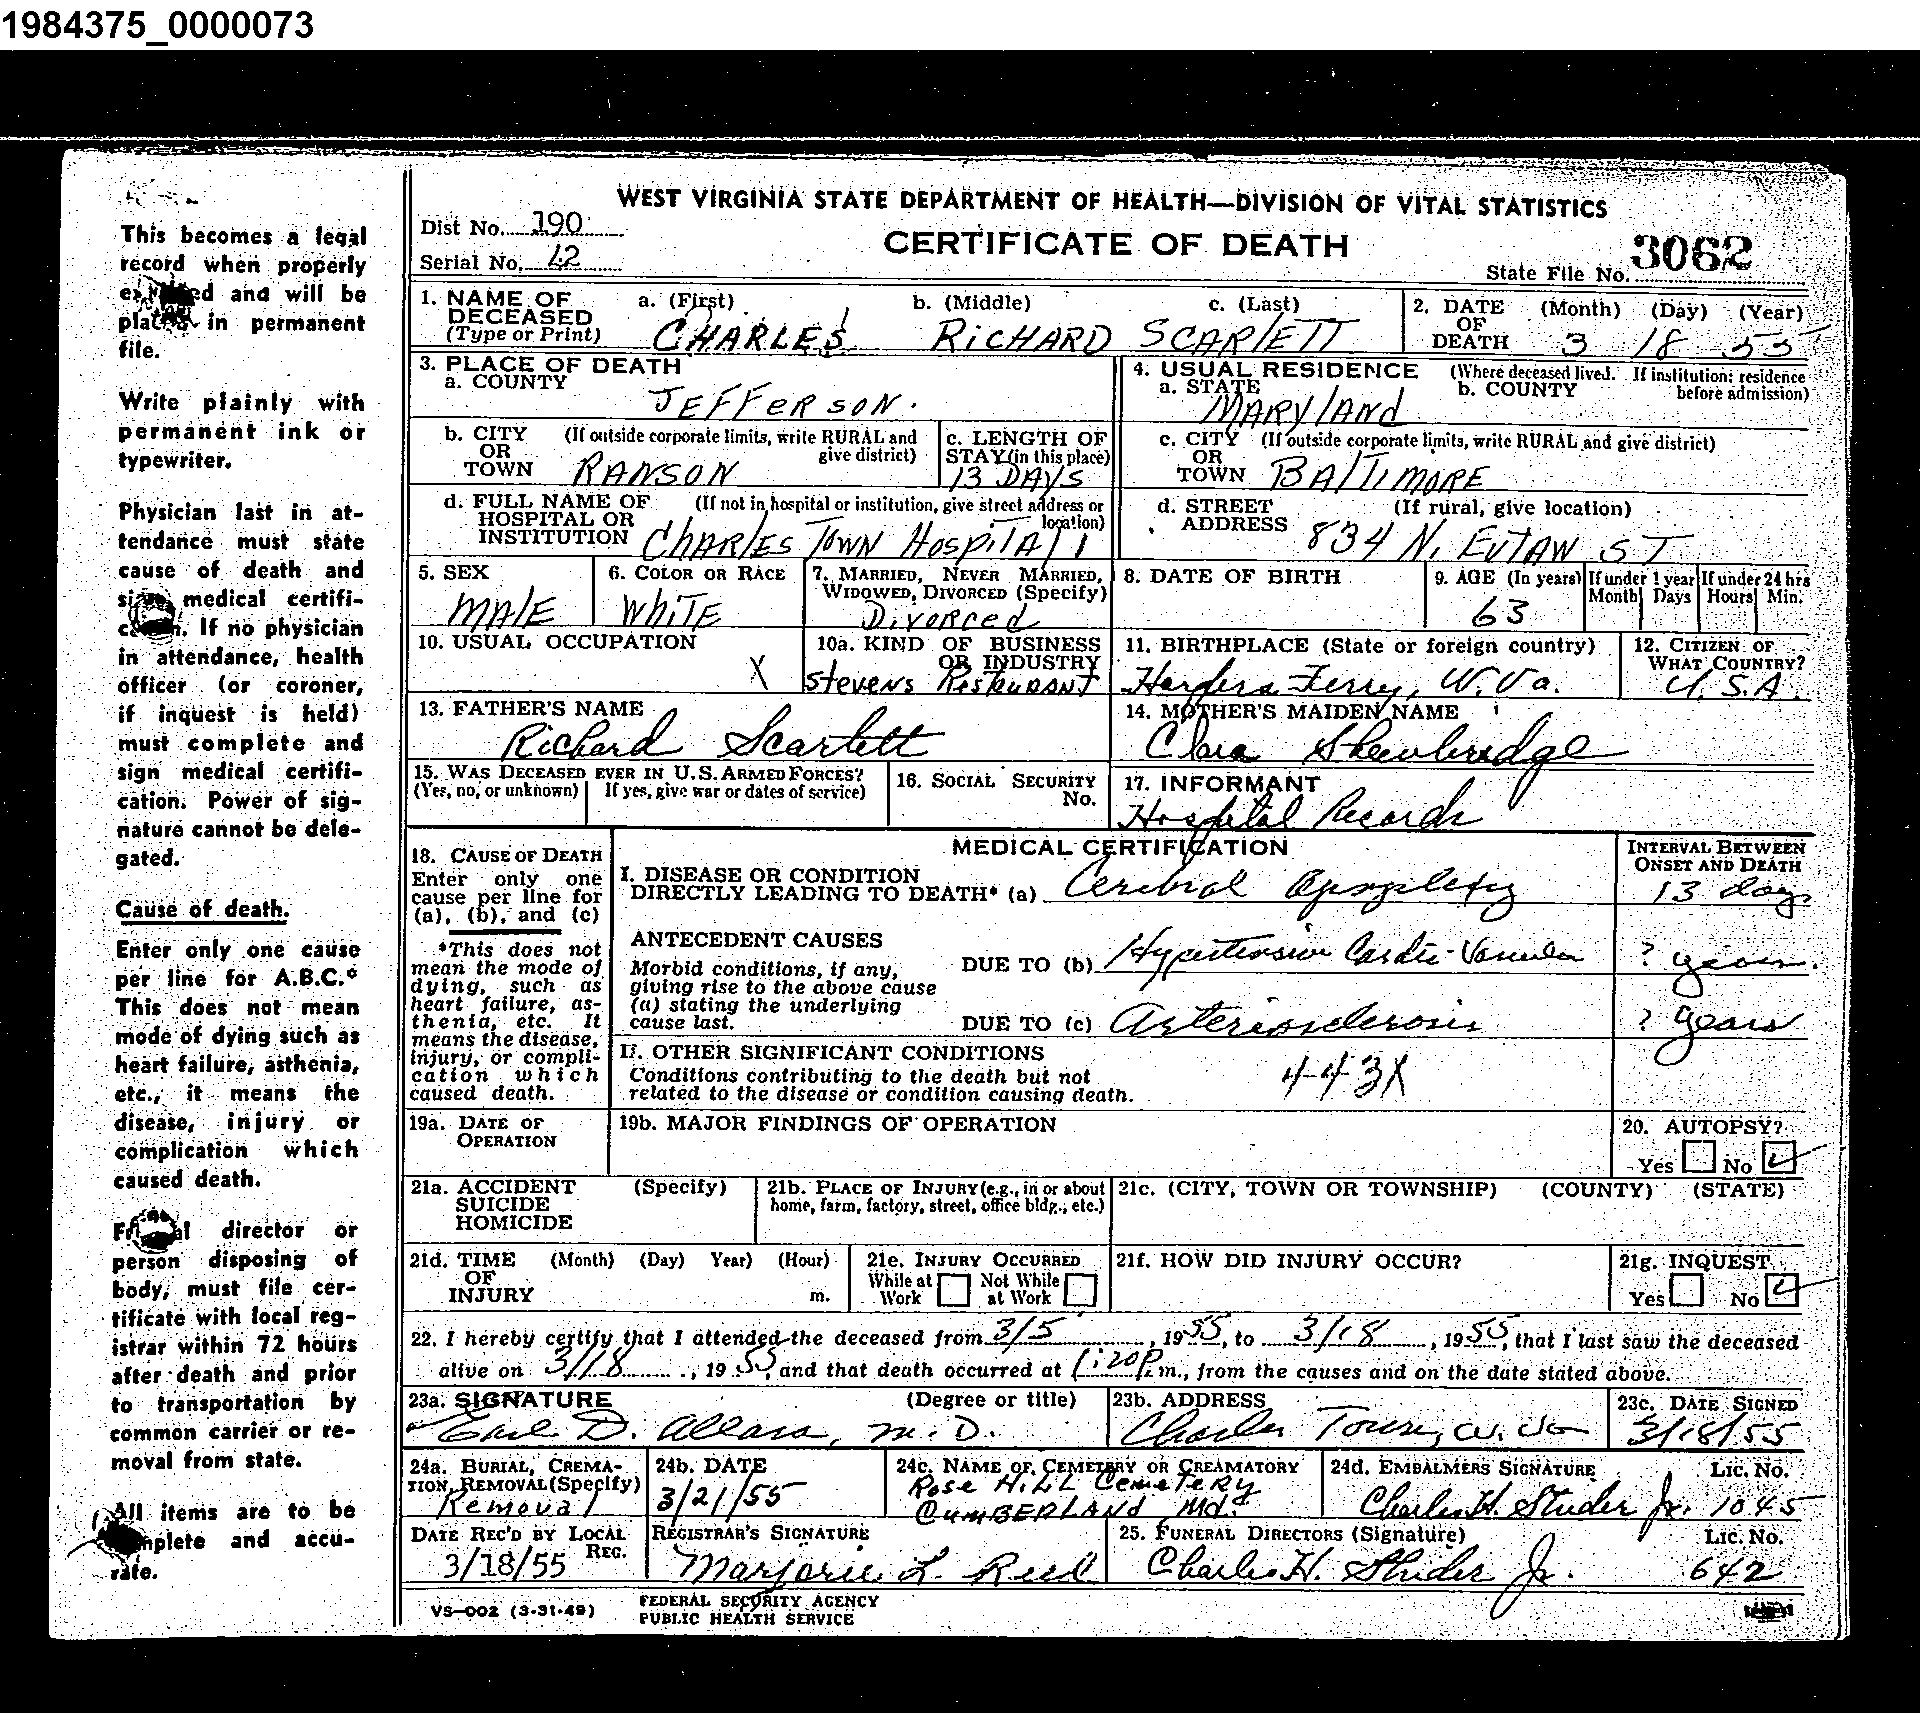 1984375_0000073
WEST VIRGINIA STATE DEPARTMENT OF HEALTH—DIVISION OF VITAL STATISTICS
Dist No. 190
CERTIFICATE OF DEATH
Serial No. 12
State File No. 3062
1. NAME OF DECEASED (Type or Print) a. (First) b. (Middle) c. (Last)
CHARLES RICHARD SCARLETT
2. DATE OF DEATH (Month) (Day) (Year)
3 18 55
3. PLACE OF DEATH
a. COUNTY
JEFFERSON.
4. USUAL RESIDENCE (Where deceased lived. If institution: residence before admission)
a. STATE b. COUNTY
MARYLAND
b. CITY OR TOWN (If outside corporate limits, write RURAL and give district)
RANSON
c. LENGTH OF STAY (in this place)
13 DAYS
c. CITY OR TOWN (If outside corporate limits, write RURAL and give district)
BALTIMORE
d. FULL NAME OF HOSPITAL OR INSTITUTION (If not in hospital or institution, give street address or location)
CHARLES TOWN HOSPITAL
d. STREET ADDRESS (If rural, give location)
834 N. EUTAW ST
5. SEX
MALE
6. COLOR OR RACE
WHITE
7. MARRIED, NEVER MARRIED, WIDOWED, DIVORCED (Specify)
Divorced
8. DATE OF BIRTH
9. AGE (In years)
63
If under 1 year
Month Days
If under 24 hrs
Hours Min.
10. USUAL OCCUPATION
X
10a. KIND OF BUSINESS OR INDUSTRY
Stevens RESTURANT
11. BIRTHPLACE (State or foreign country)
Harpers Ferry, W. Va.
12. CITIZEN OF WHAT COUNTRY?
U.S.A.
13. FATHER'S NAME
Richard Scarlett
14. MOTHER'S MAIDEN NAME
Clara Shewbridge
15. WAS DECEASED EVER IN U.S. ARMED FORCES?
(Yes, no, or unknown) If yes, give war or dates of service)
16. SOCIAL SECURITY No.
17. INFORMANT
Hospital Records
18. CAUSE OF DEATH
Enter only one cause per line for (a), (b), and (c)
*This does not mean the mode of dying, such as heart failure, asthenia, etc. It means the disease, injury, or complication which caused death.
MEDICAL CERTIFICATION
INTERVAL BETWEEN ONSET AND DEATH
I. DISEASE OR CONDITION DIRECTLY LEADING TO DEATH* (a) Cerebral Apoplexy
13 days
ANTECEDENT CAUSES
Morbid conditions, if any, giving rise to the above cause (a) stating the underlying cause last.
DUE TO (b) Hypertensive Cardio-Vascular
? years.
DUE TO (c) Arteriosclerosis
? years
II. OTHER SIGNIFICANT CONDITIONS
Conditions contributing to the death but not related to the disease or condition causing death.
443X
19a. DATE OF OPERATION
19b. MAJOR FINDINGS OF OPERATION
20. AUTOPSY?
Yes No
21a. ACCIDENT SUICIDE HOMICIDE (Specify)
21b. PLACE OF INJURY (e.g., in or about home, farm, factory, street, office bldg., etc.)
21c. (CITY, TOWN OR TOWNSHIP) (COUNTY) (STATE)
21d. TIME OF INJURY (Month) (Day) Year) (Hour) m.
21e. INJURY OCCURRED
While at Work Not While at Work
21f. HOW DID INJURY OCCUR?
21g. INQUEST
Yes No
22. I hereby certify that I attended the deceased from 3/5, 1955, to 3/18, 1955, that I last saw the deceased
alive on 3/18, 1955, and that death occurred at 1:20 P.m., from the causes and on the date stated above.
23a. SIGNATURE (Degree or title)
Earl D. Allara, M.D.
23b. ADDRESS
Charles Town, W. Va
23c. DATE SIGNED
3/18/55
24a. BURIAL, CREMATION, REMOVAL (Specify)
Removal
24b. DATE
3/21/55
24c. NAME OF CEMETERY OR CREAMATORY
Rose Hill Cemetery
CUMBERLAND Md.
24d. EMBALMERS SIGNATURE LIC. NO.
Charles H. Studer Jr. 1045
DATE REC'D BY LOCAL REG.
3/18/55
REGISTRAR'S SIGNATURE
Marjorie L. Reed
25. FUNERAL DIRECTORS (Signature) LIC. NO.
Charles H. Studer Jr. 642
VS-002 (3-31-49)
FEDERAL SECURITY AGENCY
PUBLIC HEALTH SERVICE
This becomes a legal
record when properly
and will be
in permanent
file.
Write plainly with
permanent ink or
typewriter.
Physician last in at-
tendance must state
cause of death and
medical certifi-
If no physician
in attendance, health
officer (or coroner,
if inquest is held)
must complete and
sign medical certifi-
cation. Power of sig-
nature cannot be dele-
gated.
Cause of death.
Enter only one cause
per line for A.B.C.*
This does not mean
mode of dying such as
heart failure, asthenia,
etc., it means the
disease, injury or
complication which
caused death.
director or
person disposing of
body, must file cer-
tificate with local reg-
istrar within 72 hours
after death and prior
to transportation by
common carrier or re-
moval from state.
All items are to be
and accu-
rate.